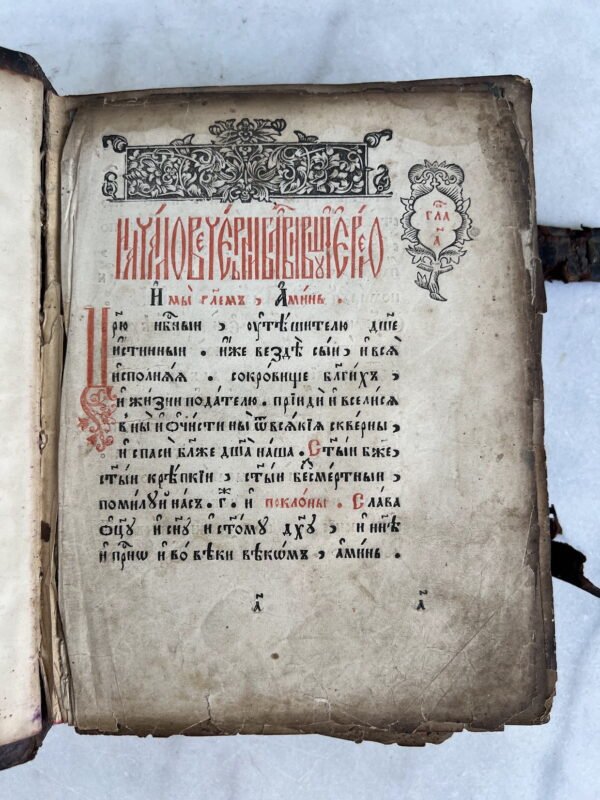 НАЧА́ЛО ВЕЧЕ́РНИ БЛГВИ́ВШꙊ ІЕРЕ́Ю
гла
а҃
И҆ мы̀ гл҃емъ , А҆ми́нь .
Цр҃ю нб҃ныи , ᲂу҆тѣ́шителю дш҃е
и҆́стинныи . и҆́же вездѣ̀ сы́и , и҆ всѧ̀
и҆сполнѧ́ѧ . сокро́вище бл҃ги́хъ ,
и҆ жи́зни пода́телю . прїидѝ и҆ всели́сѧ
в ны̀ и҆ ѡ҆чи́сти ны̀ ѿ всѧ́кїѧ скве́рны ,
и҆ спасѝ бл҃же дш҃а на́ша . Ст҃ы́и бж҃е ,
ст҃ы́и крѣ́пкїи , ст҃ы́и бесме́ртныи ,
поми́лꙋй на́съ . г҃ . ж и҆ покло́ны . Сла́ва
ѻ҆ц҃ꙋ и҆ сн҃ꙋ и҆ ст҃о́мꙋ дх҃ꙋ , и҆ нн҃ѣ
и҆ при́снѡ и҆ во́ вѣки вѣкѡ́мъ , а҆ми́нь .
а҃ а҃